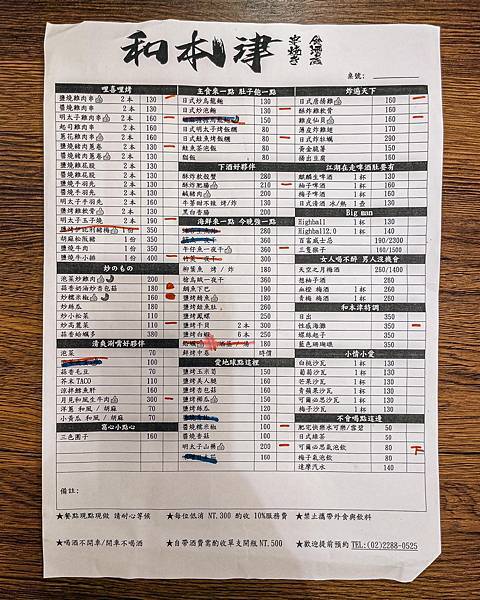 和本津
串燒き
桌號:
哩喜哩烤
鹽燒雞肉串 2本 130
醬燒雞肉串 2本 130
明太子雞肉串 2本 160
起司雞肉串 2本 160
蔥花雞肉串 2本 160
鹽燒豬肉蔥卷 2本 160
醬燒豬肉蔥卷 2本 160
鹽燒雞屁股 2本 130
醬燒雞屁股 2本 130
鹽燒手羽先 2本 130
醬燒手羽先 2本 130
明太子手羽先 2本 160
鹽燒雞軟骨 2本 130
明太子玉子燒 2本 190
鹽烤伊比利豬梅 1份 350
胡麻松阪豬 1份 350
鹽燒牛肉 1份 350
鹽燒牛小排 1份 400
炒のもの
泡菜炒雞肉 200
蒜香奶油炒杏包菇 160
炒糯米椒 160
炒絲瓜 180
炒小松菜 110
炒高麗菜 110
蒜香蛤蠣多 380
清爽涮嘴好夥伴
泡菜 70
100
蒜香毛豆 70
芥末TACO 110
涼拌鱈魚肝 160
月見和風生牛肉 300
洋蔥 和風 / 胡麻 70
小黃瓜 和風 / 胡麻 70
窩心小點心
三色團子 160
主食來一點 肚子飽一點
日式炒烏龍麵 130
日式炒泡麵 130
180
日式明太子烤飯糰 80
日式鮭魚烤飯糰 80
鮭魚茶泡飯 130
鬆飯 80
下酒好夥伴
酥炸軟殼蟹 280
酥炸肥腸 210
鹹豬肉 200
牛蒡甜不辣 烤/炸 180
黑白香腸 200
海鮮來一點 今晚強一點
360
午仔魚一夜干 360
竹莢一夜干 300
柳葉魚 烤 / 炸 180
喉烏賊一夜干 350
鯛魚下巴 190
鹽烤鯖魚 180
鹽烤鮭魚肚 260
鹽烤鳳螺 250
鹽烤干貝 2本 300
鹽烤白蝦 6本 250
180
鮮烤中卷 時價
愛地球點這裡
鹽烤玉米筍 150
鹽烤美人腿 160
鹽烤杏包菇 150
鹽烤櫛瓜 150
鹽烤絲瓜 120
100
醬燒糯米椒 100
醬燒香菇 100
明太子山藥 200
160
炸遍天下
日式唐揚雞 160
酥炸雞軟骨 160
雞皮仙貝 160
薄皮炸雞翅 170
日式炸牡蠣 290
黃金脆薯 150
揚出豆腐 160
江湖在走啤酒肚要有
麒麟生啤酒 1杯 130
柚子啤酒 1杯 160
桃子啤酒 1杯 160
日式清酒 冰/熱 1壺 130
Big man
Highball 1杯 130
Highball2.0 1杯 140
百富威士忌 190/2300
三隻猴子 160/1500
女人喝不醉 男人沒機會
天空之月梅酒 260/1400
想柚子酒 260
血橙 梅酒 1杯 260
青梅 梅酒 1杯 260
和本津特調
日出 350
性感海灘 350
螺絲起子 350
藍色珊瑚礁 350
小情小愛
白桃沙瓦 1杯 130
葡萄沙瓦 1杯 130
芒果沙瓦 1杯 130
青蘋果沙瓦 1杯 130
可爾必思沙瓦 1杯 130
梅子沙瓦 1杯 130
不會喝點這邊
肥宅快樂水可樂/雪碧 50
日式綠茶 50
可爾必思氣泡飲 80
梅子氣泡飲 80
達摩汽水 140
備註:
★餐點現點現做 請耐心等候 ★每位低消 NT.300 酌收 10%服務費 ★禁止攜帶外食與飲料
★喝酒不開車/開車不喝酒 ★自帶酒費需酌收單支開瓶NT.500 ★歡迎提前預約 TEL:(02)2288-0525